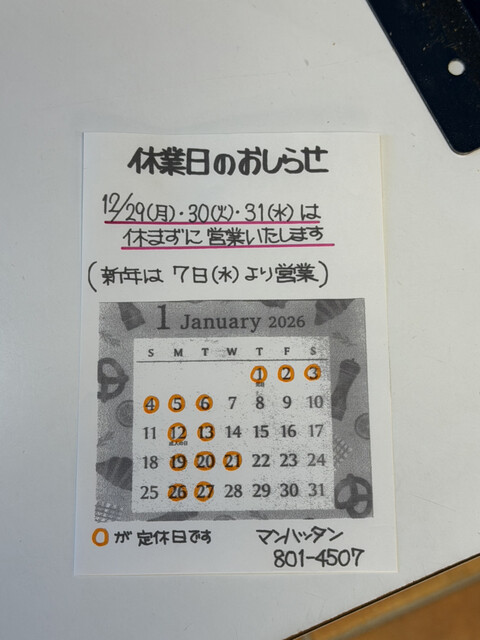 休業日のおしらせ
12/29(月)・30(火)・31(水)は
休まずに営業いたします
(新年は 7日(水)より営業)
1 January 2026
S M T W T F S
1 2 3
4 5 6 7 8 9 10
11 12 13 14 15 16 17
18 19 20 21 22 23 24
25 26 27 28 29 30 31
○が 定休日です
マンハッタン
801-4507